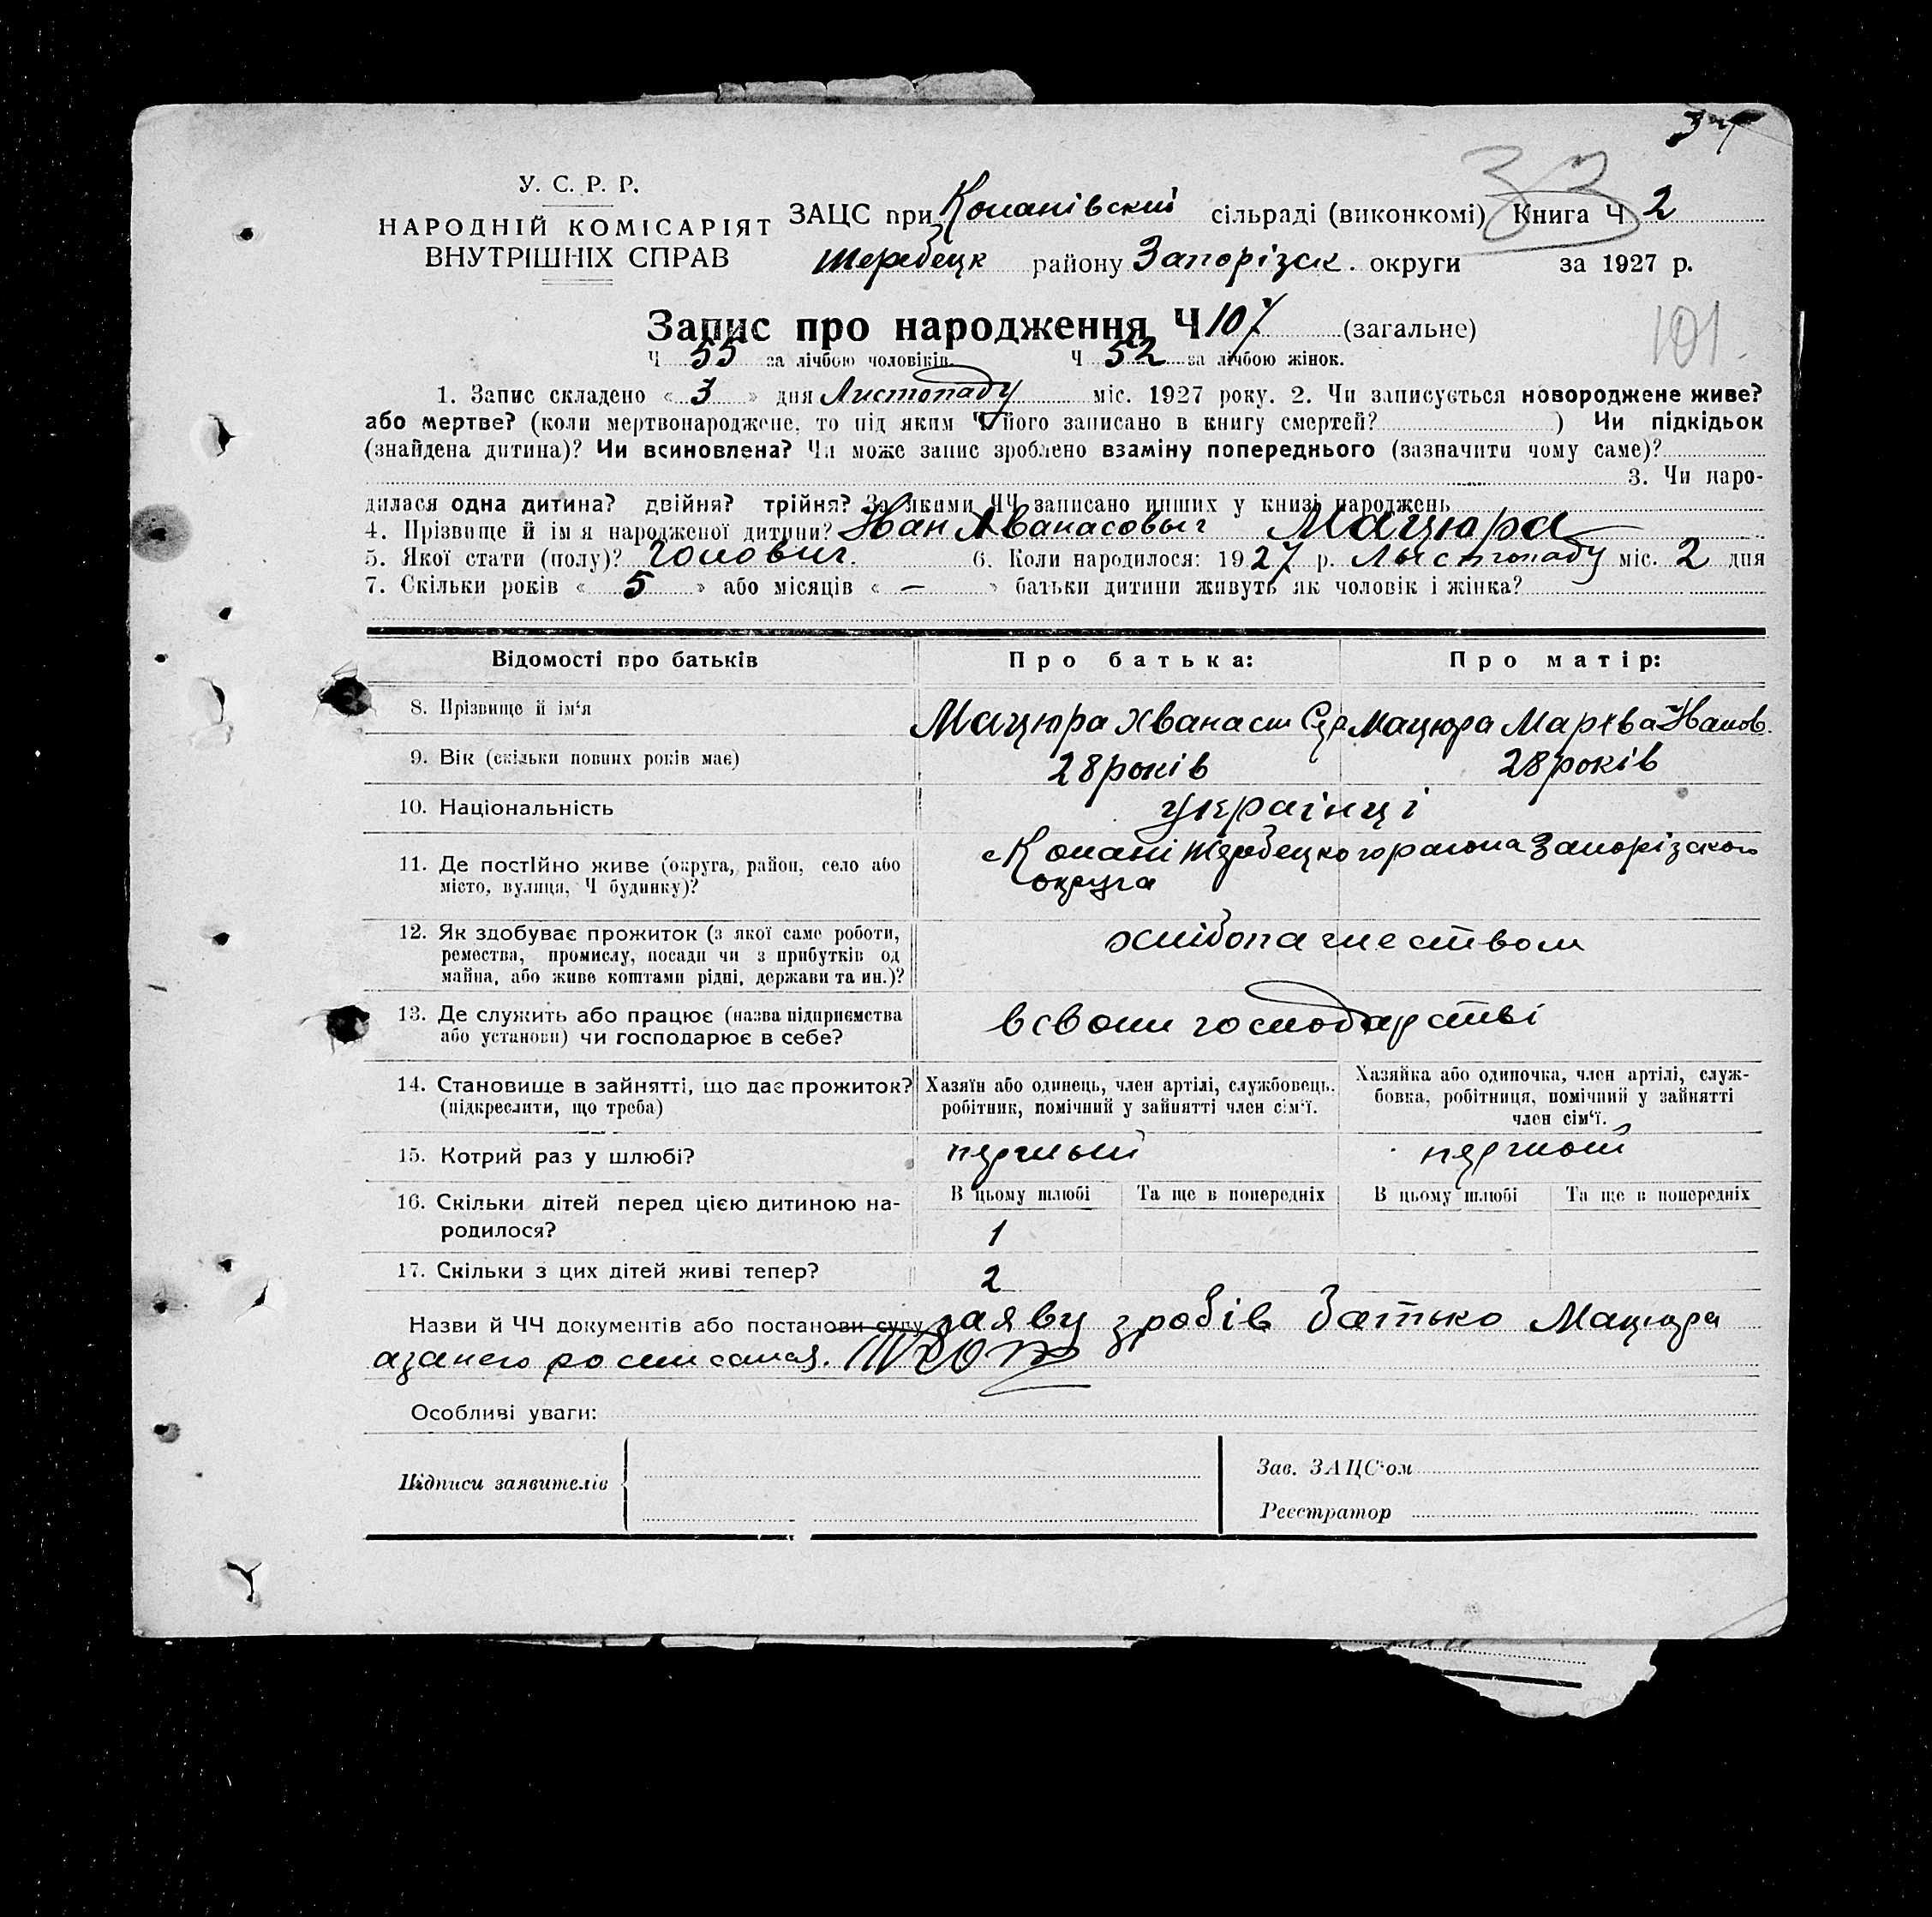 33
У. С. Р. Р.
НАРОДНІЙ КОМІСАРІЯТ
ВНУТРІШНІХ СПРАВ
ЗАЦС при Копанівский сільраді (виконкомі) Книга Ч 2
Жеребецк району Запорізск. округи за 1927 р.
Запис про народження Ч 107 (загальне)
101.
Ч 55 за лічбою чоловіків. Ч 52 за лічбою жінок.
1. Запис складено « 3 » дня Листопаду міс. 1927 року. 2. Чи записується новороджене живе?
або мертве? (коли мертвонароджене, то під яким Ч його записано в книгу смертей? ) Чи підкідьок
(знайдена дитина)? Чи всиновлена? Чи може запис зроблено взаміну попереднього (зазначити чому саме)?
3. Чи наро-
дилася одна дитина? двійня? трійня? За якими ЧЧ записано инших у книзі народжень
4. Прізвище й ім я народженої дитини? Іван Хванасовыч Мацюра
5. Якої стати (полу)? Чолович. 6. Коли народилося: 1927 р. Лыстопаду міс. 2 дня
7. Скільки років « 5 » або місяців « — » батьки дитини живуть як чоловік і жінка?
Відомості про батьків Про батька: Про матір:
8. Прізвище й ім‘я Мацюра Хванаси Мацюра Марква Іванов.
9. Вік (скільки повних років має) 28 років 28 років
10. Національність українці
11. Де постійно живе (округа, район, село або
місто, вулиця, Ч будинку)?
с Копані Жеребецкого раиона Запорізского
округа
12. Як здобуває прожиток (з якої саме роботи,
ремества, промислу, посади чи з прибутків од
майна, або живе коштами рідні, держави та ин.)?
хлібопашеством
13. Де служить або працює (назва підприємства
або установи) чи господарює в себе?
всвоим господарстві
14. Становище в зайнятті, що дає прожиток?
(підкреслити, що треба)
Хазяїн або одинець, член артілі, службовець,
робітник, помічний у зайнятті член сім‘ї.
Хазяйка або одиночка, член артілі, служ-
бовка, робітниця, помічний у зайнятті
член сім‘ї.
15. Котрий раз у шлюбі? первый первый
16. Скільки дітей перед цією дитиною на-
родилося?
В цьому шлюбі Та ще в попередніх В цьому шлюбі Та ще в попередніх
1
17. Скільки з цих дітей живі тепер? 2
Назви й ЧЧ документів або постанови суду заяву зробів батько Мацюра
азанего росписалая.
Особливі уваги:
Підписи заявителів
Зав. ЗАЦС‘ом
Реєстратор